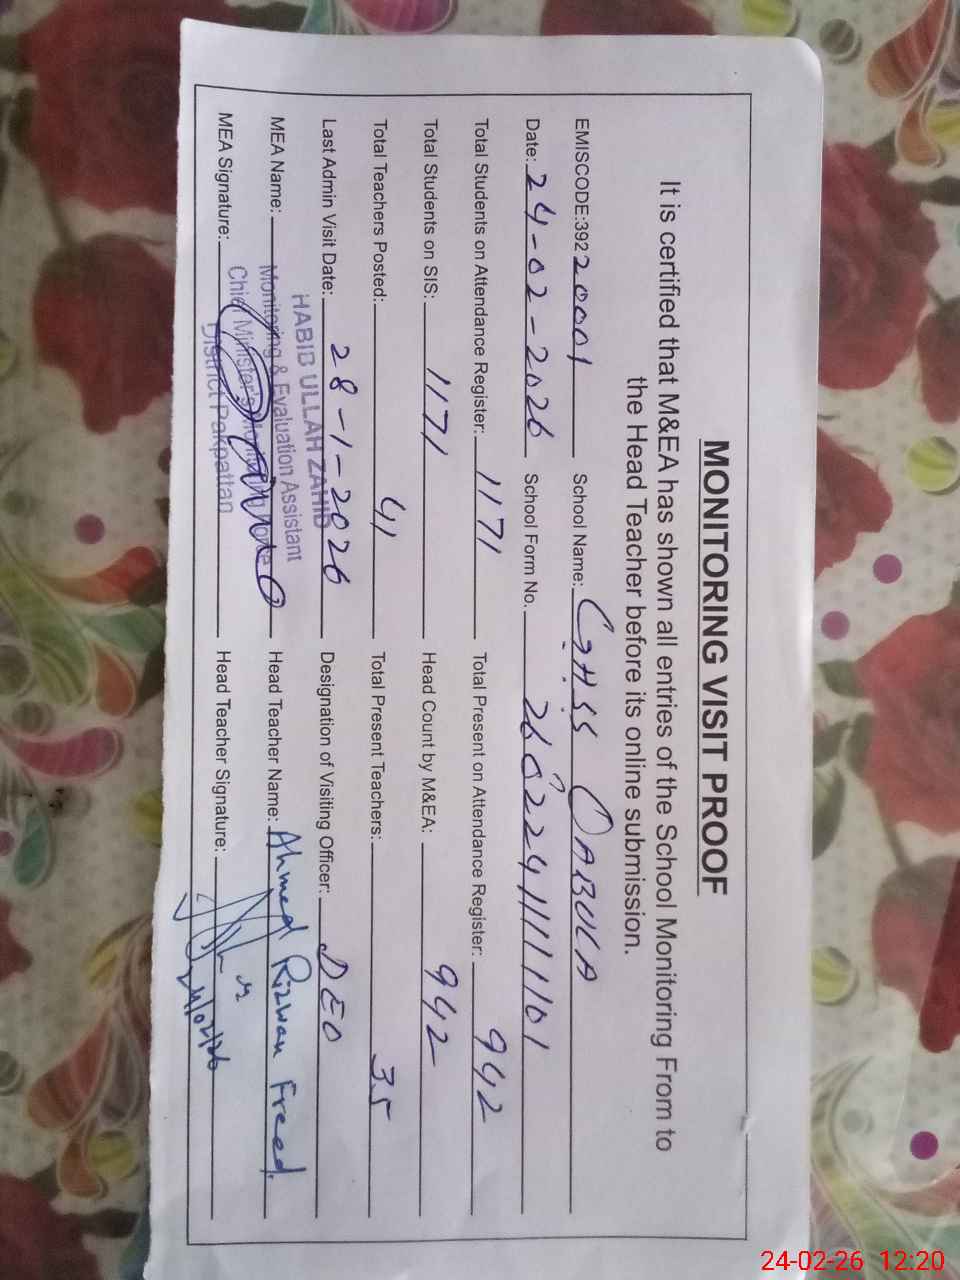 MONITORING VISIT PROOF
It is certified that M&EA has shown all entries of the School Monitoring From to
the Head Teacher before its online submission.
EMISCODE:39220001 School Name: GHSS QABULA
Date: 24-02-2026 School Form No.
Total Students on Attendance Register: 1171 Total Present on Attendance Register: 942
Total Students on SIS: 1171 Head Count by M&EA: 942
Total Teachers Posted: 41 Total Present Teachers: 35
Last Admin Visit Date: 28-1-2026 Designation of Visiting Officer: DEO
HABIB ULLAH ZAHID
MEA Name: Monitoring & Evaluation Assistant Head Teacher Name: Ahmed Rizwan Freed.
Chief Minister's Monitoring Force
MEA Signature: District Pakpattan Head Teacher Signature: 24/02/26
24-02-26 12:20